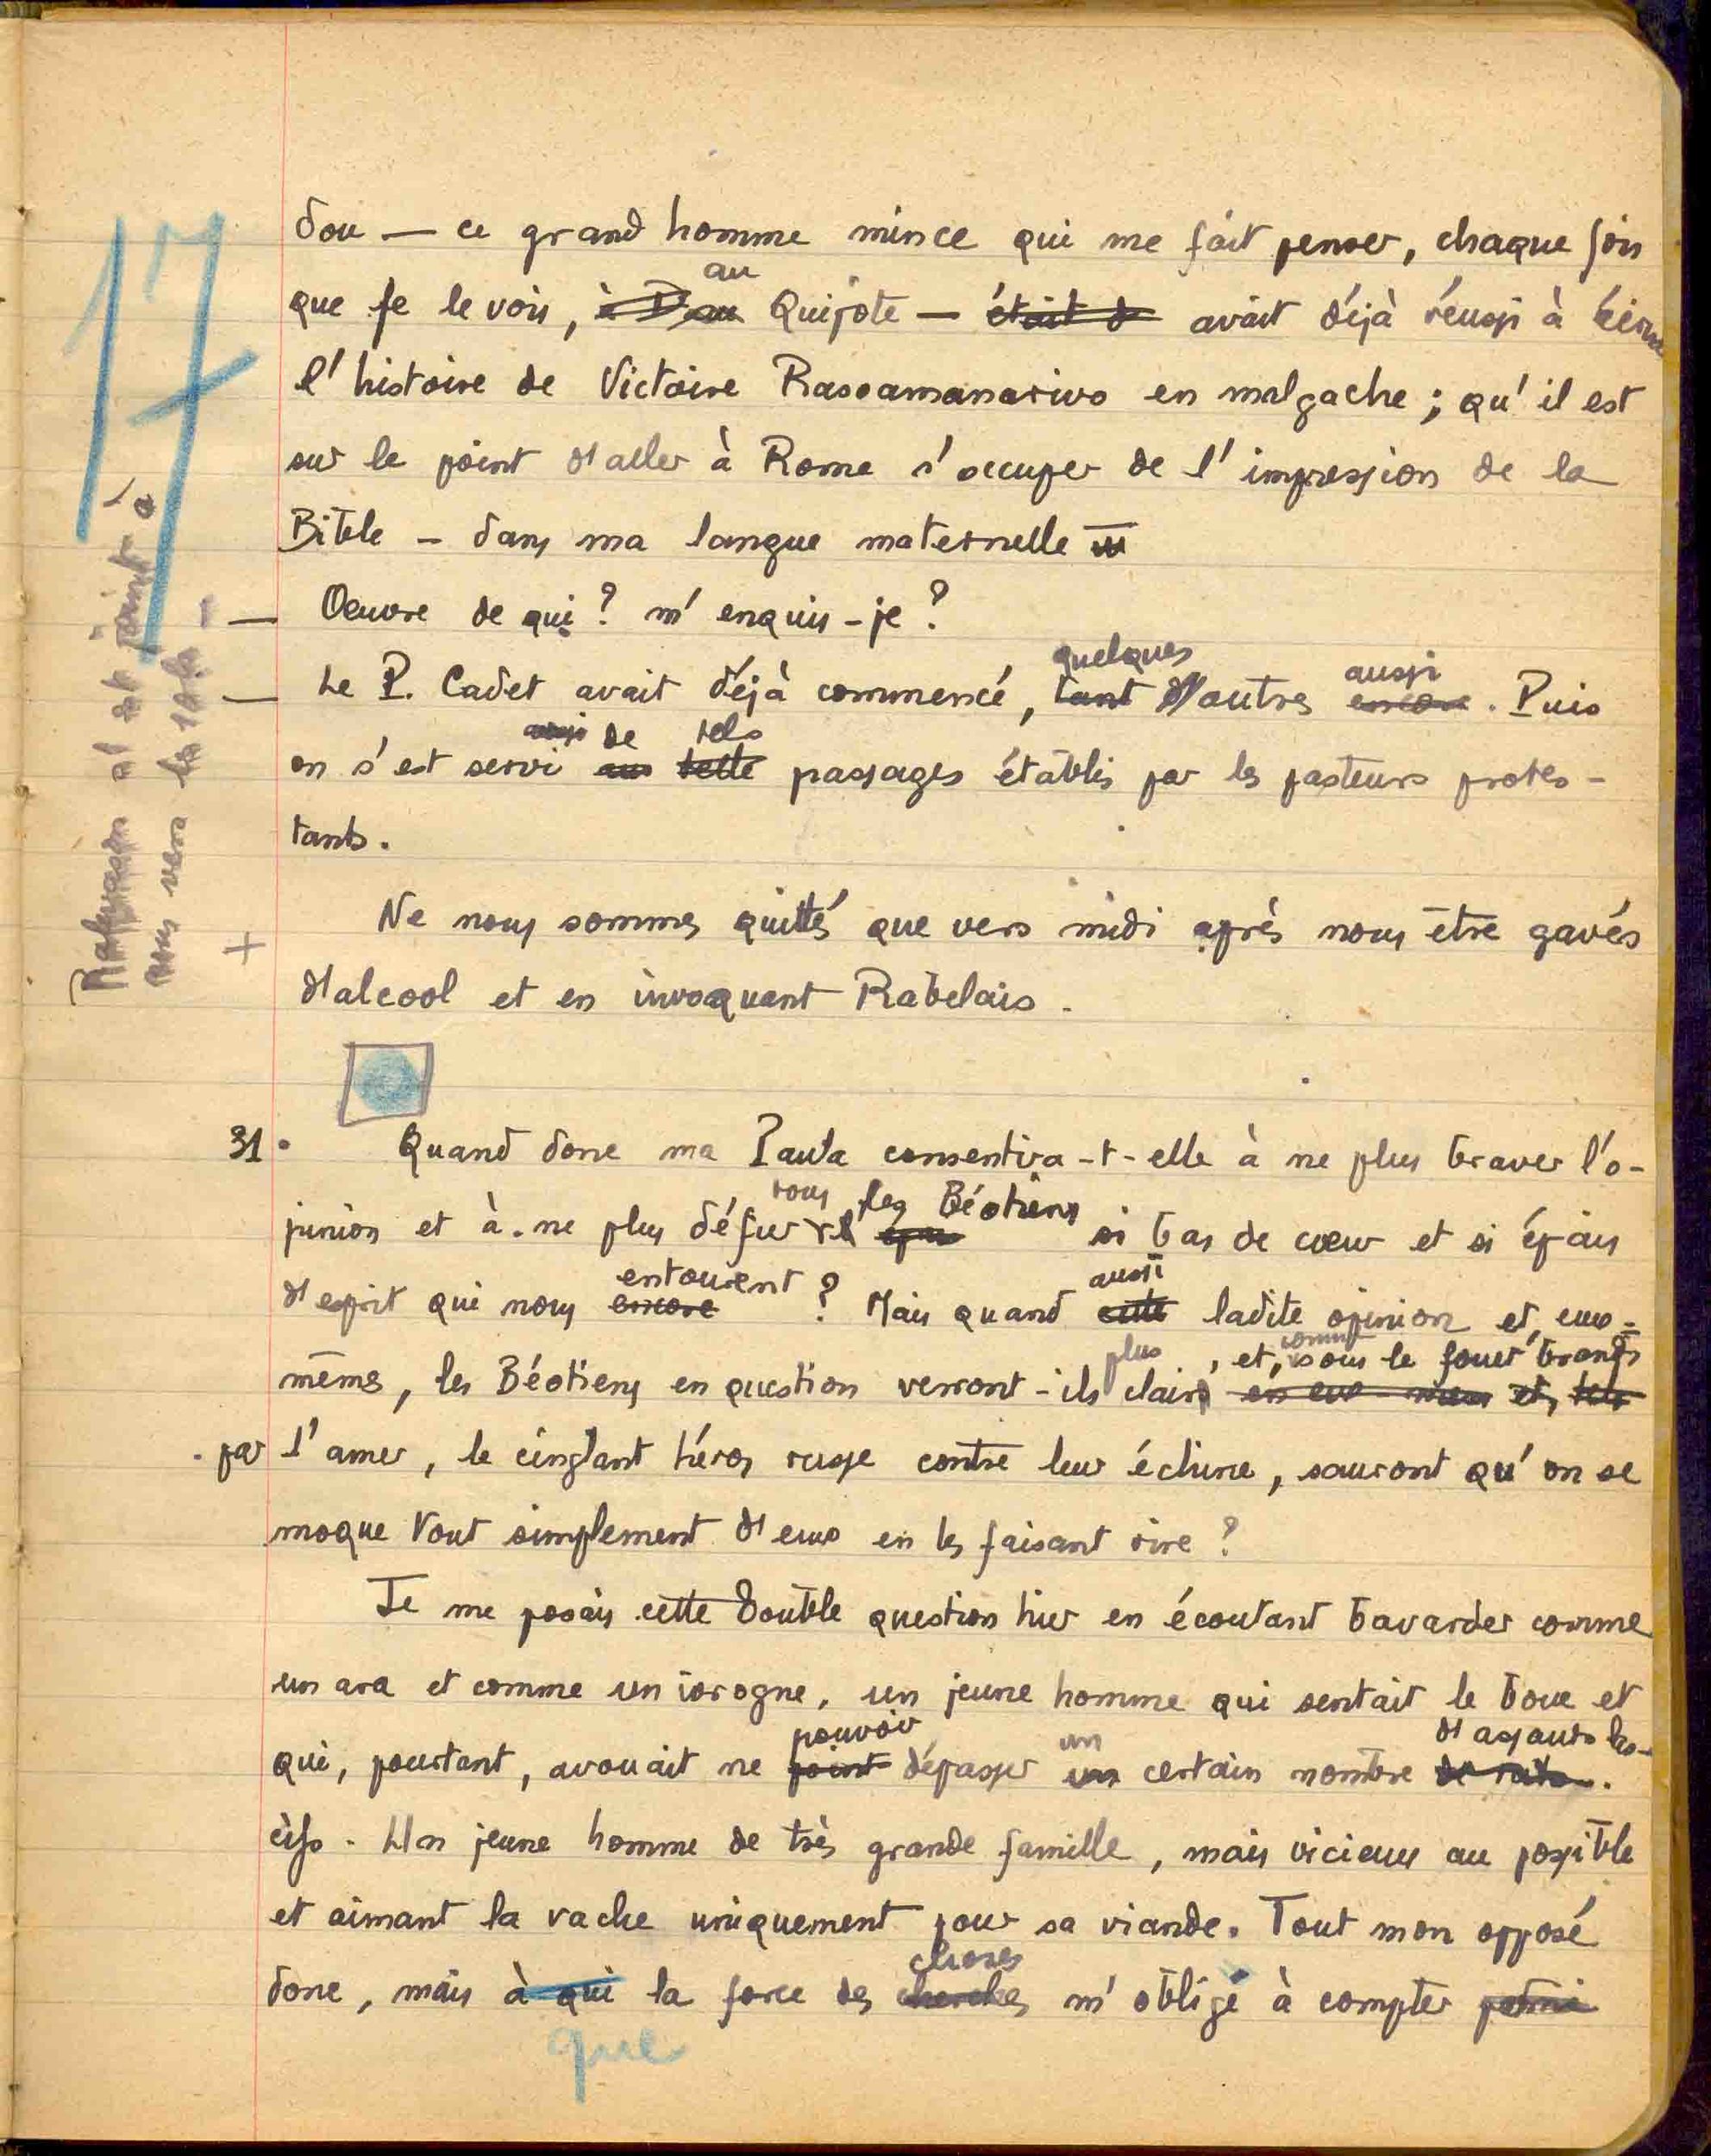 17
dou — ce grand homme mince qui me fait penser, chaque fois
au
que je le vois, Quijote — était d avait déjà réussi à écrire
l'histoire de Victoire Rasoamanarivo en malgache ; qu'il est
sur le point d'aller à Rome s'occuper de l'impression de la
Bible – dans ma langue maternelle
— Oeuvre de qui ? m'enquis-je ?
quelques aussi
— Le P. Cadet avait déjà commencé, tant d'autres encore. Puis
aussi de tels
on s'est servi aux telle passages établis par les pasteurs protes-
tants.
Ne nous sommes quittés que vers midi après nous être gavés
d'alcool et en invoquant Rabelais.
à
s'est joint à
nous vers les 10 h –
+
31. Quand donc ma Paula consentira-t-elle à ne plus braver l'o-
tous les Béotiens
pinion et à ne plus défier si bas de cœur et si épais
entourent aussi
d'esprit qui nous encore ? Mais quand cette ladite opinion et, eux-
plus , et, comme sous le fouet brandi
mêmes, les Béotiens en question verront-ils clair en eux-mêmes et,
par l'amer, le cinglant héros russe contre leur échine, sauront qu'on se
moque tout simplement d'eux en les faisant rire ?
Je me posais cette double question hier en écoutant bavarder comme
un ara et comme un ivrogne, un jeune homme qui sentait le bouc et
pouvoir un d'assauts las-
qui, pourtant, avouait ne point dépasser un certain nombre
cifs. Un jeune homme de très grande famille, mais vicieux au possible
et aimant la vache uniquement pour sa viande. Tout mon opposé
choses
donc, mais à qui la force des cherches m'oblige à compter parmi
que